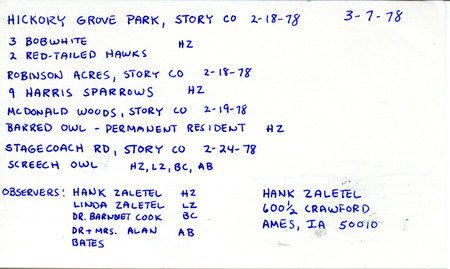 HICKORY GROVE PARK, STORY CO 2-18-78 3-7-78
3 BOBWHITE HZ
2 RED-TAILED HAWKS
ROBINSON ACRES, STORY CO 2-18-78
9 HARRIS SPARROWS HZ
MCDONALD WOODS, STORY CO 2-19-78
BARRED OWL - PERMANENT RESIDENT HZ
STAGECOACH RD, STORY CO 2-24-78
SCREECH OWL HZ, LZ, BC, AB
OBSERVERS: HANK ZALETEL HZ
LINDA ZALETEL LZ
DR. BARNNET COOK BC
DR + MRS. ALAN BATES AB
HANK ZALETEL
600½ CRAWFORD
AMES, IA 50010